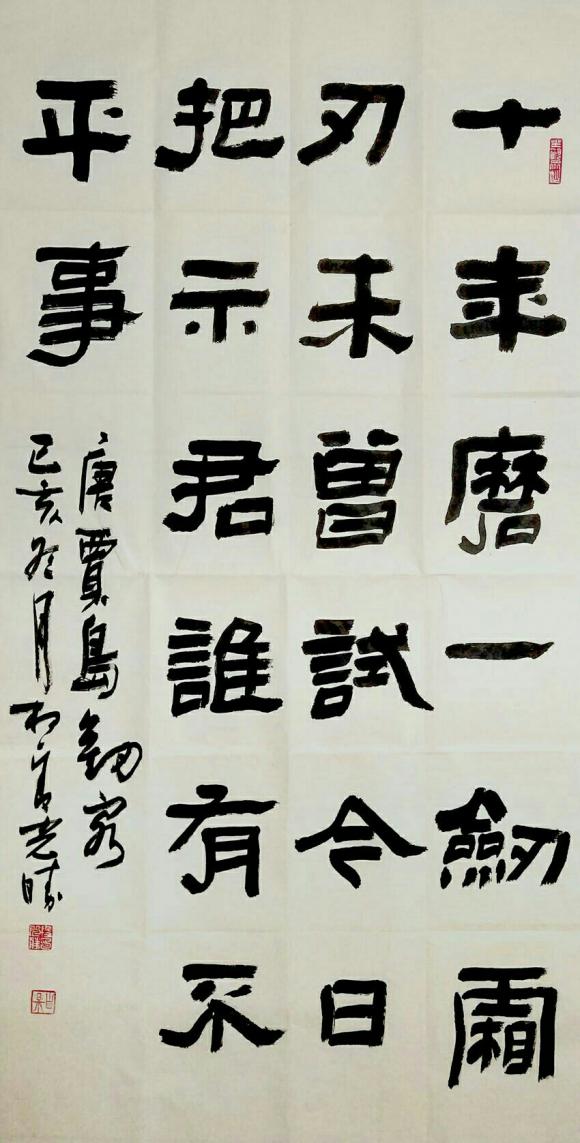 十年磨一劒霜
刃未曾試今日
把示君誰有不
平事
唐賈島釼客
己亥冬月